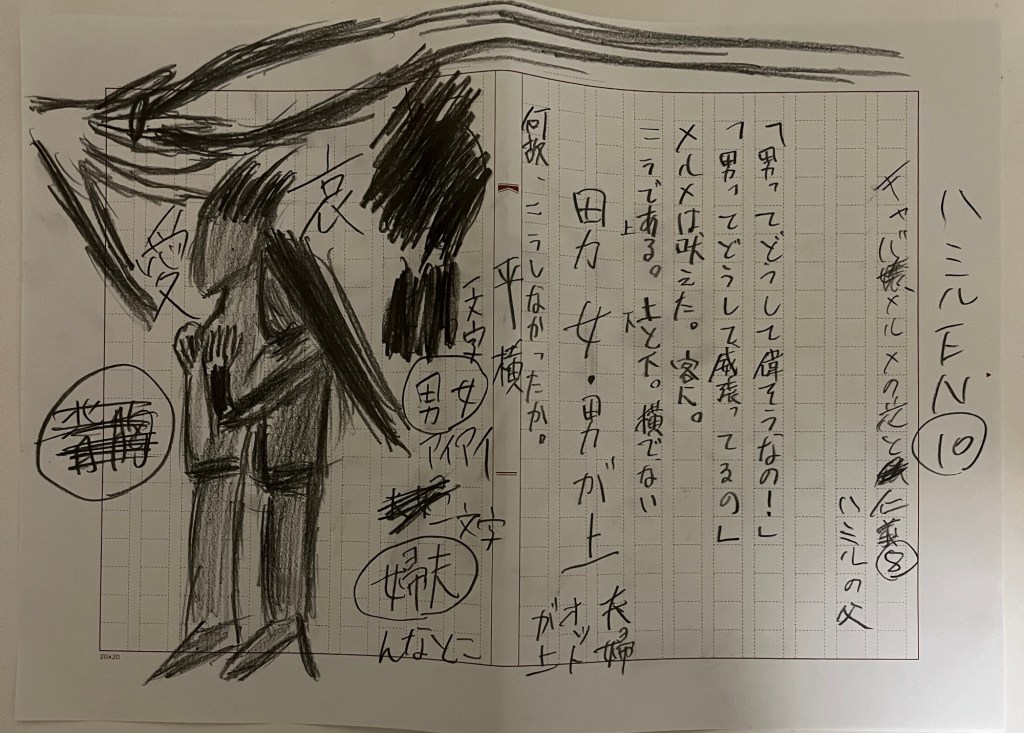 ハミルEN.⑩
キャバ嬢メルメの花と仁義⑧
ハミルの父
「男ってどうして偉そうなの!」
「男ってどうして威張ってるの」
メルメは吠えた。客に。
こうである。上と下。横でない
上
下
男女・男が上
夫婦
オットが上
何故、こうしなかったか。
平
横
文字
男女
アイアイ
文字
婦夫
んなとこ
哀
愛